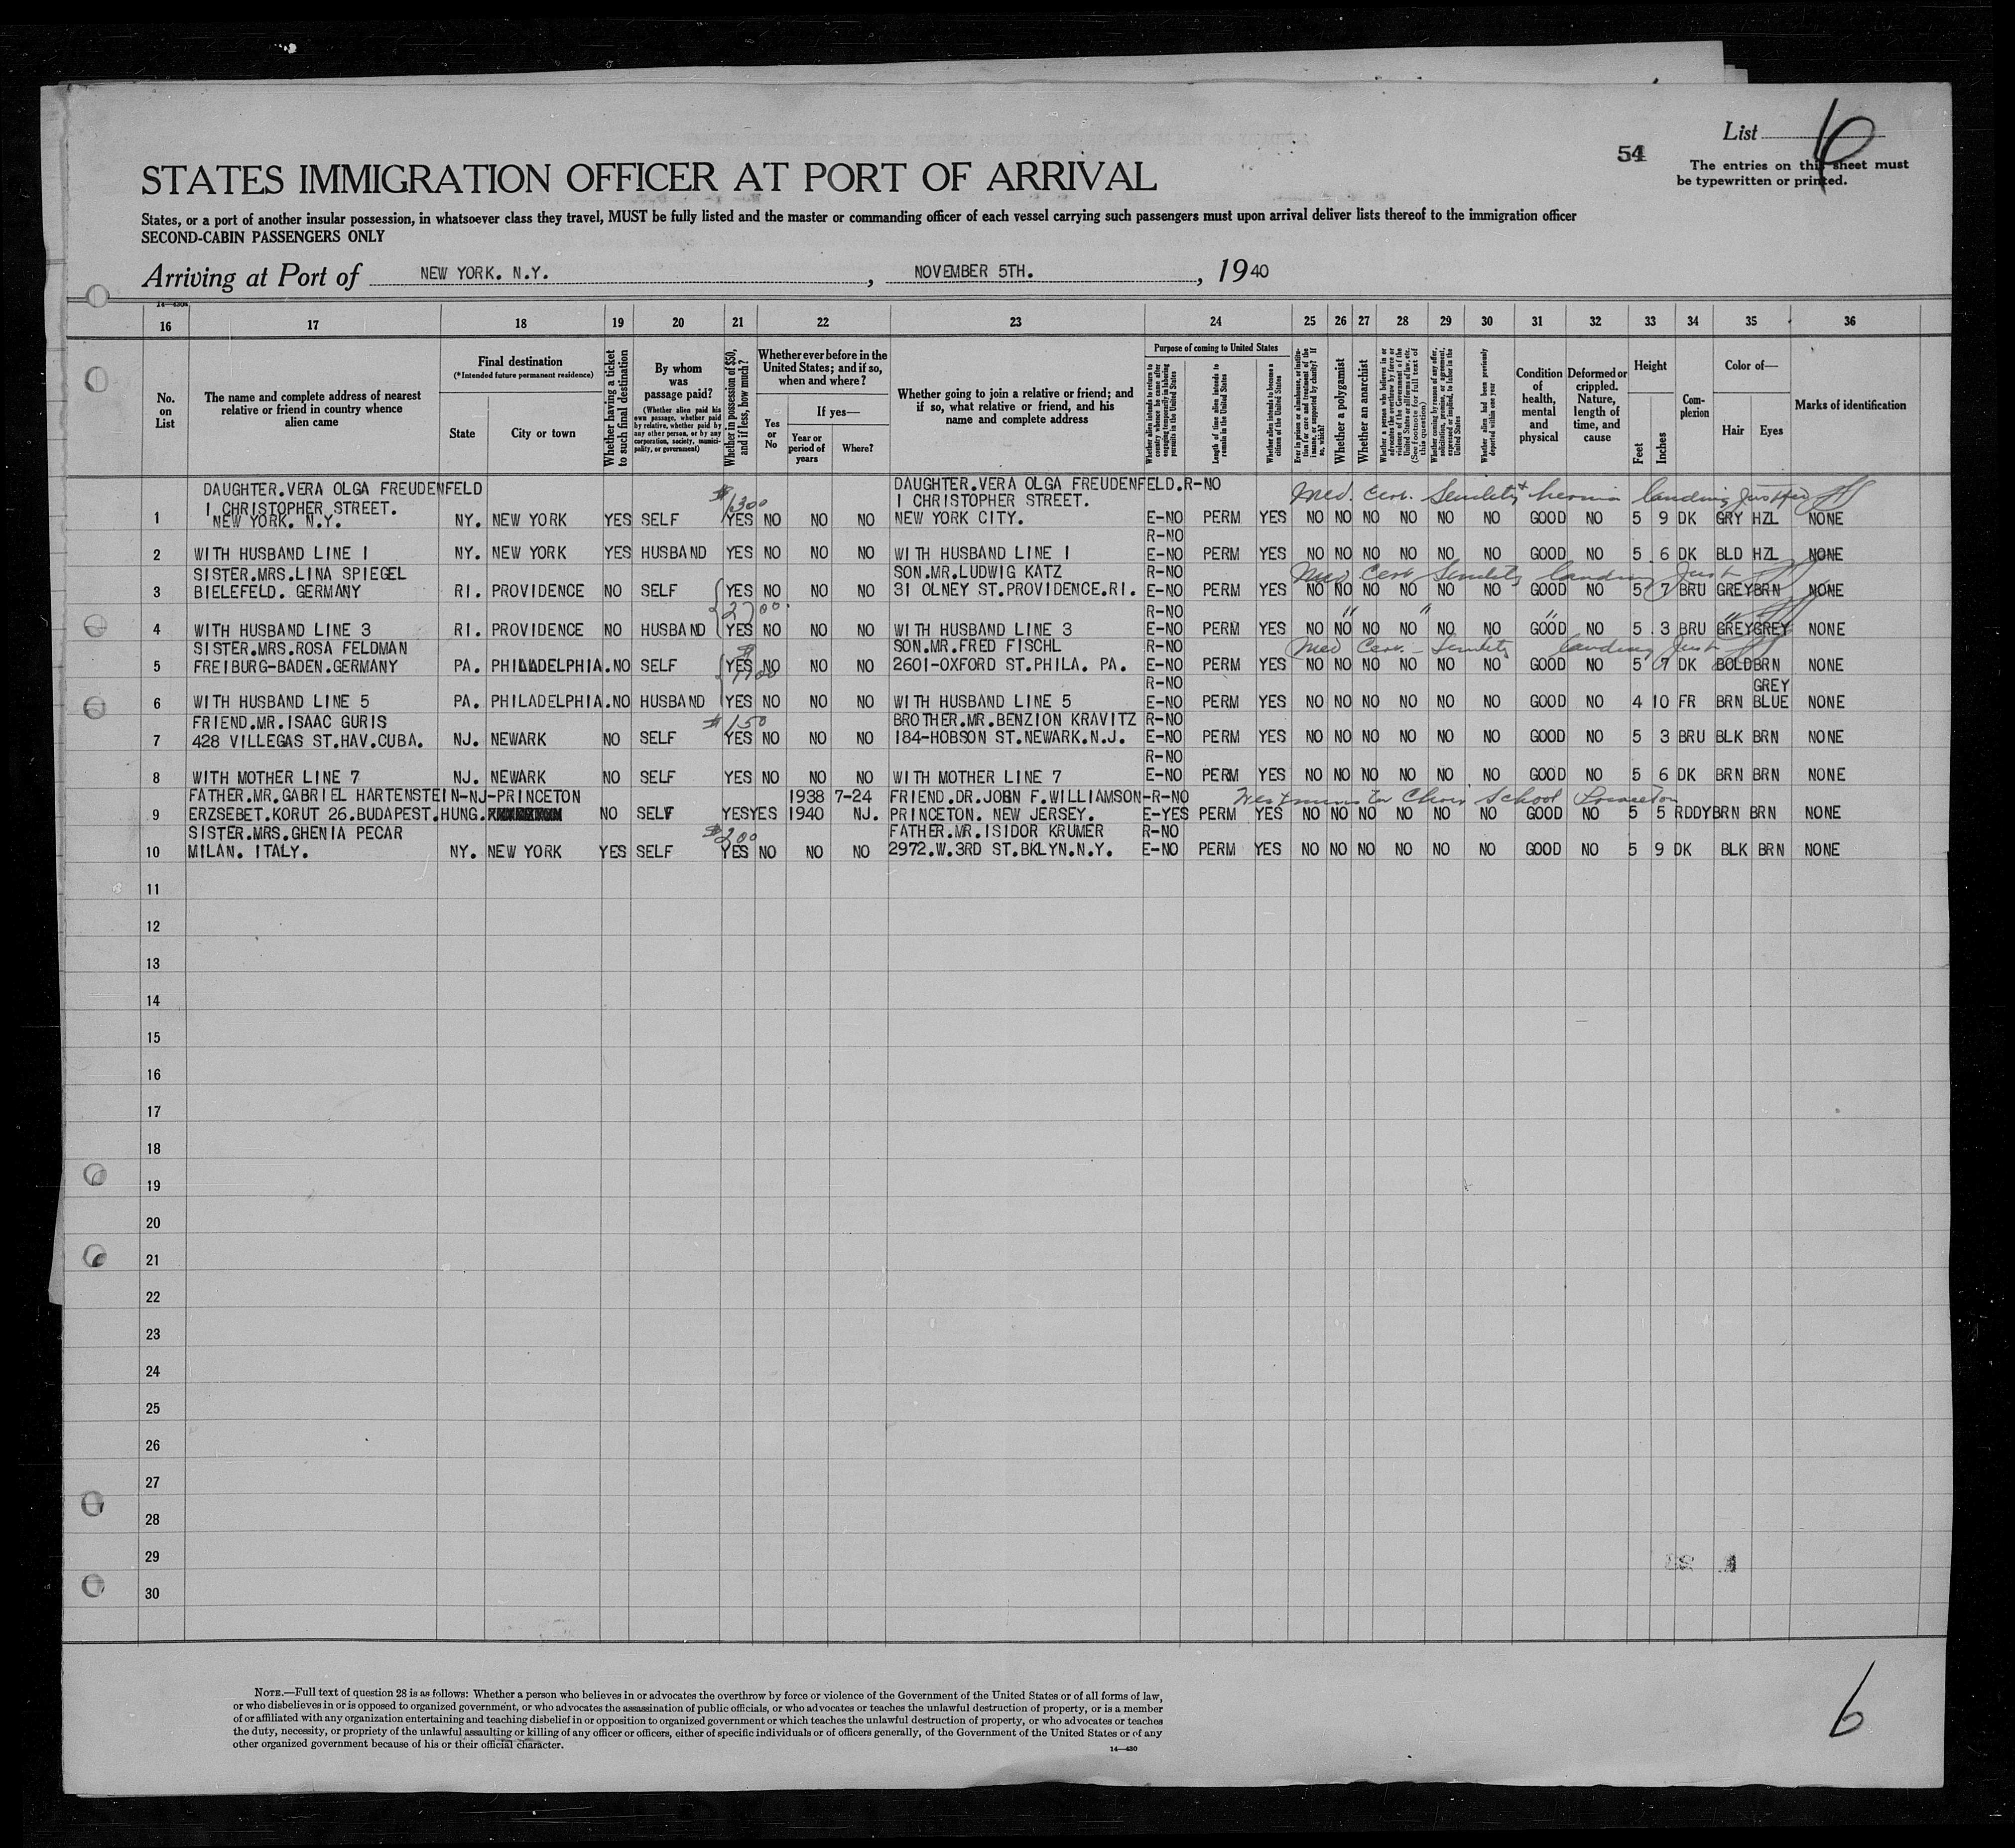 List 6
54
The entries on this sheet must
be typewritten or printed.
STATES IMMIGRATION OFFICER AT PORT OF ARRIVAL
States, or a port of another insular possession, in whatsoever class they travel, MUST be fully listed and the master or commanding officer of each vessel carrying such passengers must upon arrival deliver lists thereof to the immigration officer
SECOND-CABIN PASSENGERS ONLY
Arriving at Port of NEW YORK. N.Y. , NOVEMBER 5TH. , 1940
16 17 18 19 20 21 22 23 24 25 26 27 28 29 30 31 32 33 34 35 36
No.
on
List
The name and complete address of nearest
relative or friend in country whence
alien came
Final destination
(*Intended future permanent residence)
State
City or town
Whether having a ticket
to such final destination
By whom
was
passage paid?
(Whether alien paid his
own passage, whether paid
by relative, whether paid by
any other person, or by any
corporation, society, munici-
pality, or government)
Whether in possession of $50,
and if less, how much?
Whether ever before in the
United States; and if so,
when and where?
Yes
or
No
If yes—
Year or
period of
years
Where?
Whether going to join a relative or friend; and
if so, what relative or friend, and his
name and complete address
Purpose of coming to United States
Whether alien intends to return to
country whence he came after
engaging temporarily in laboring
pursuits in the United States
Length of time alien intends to
remain in the United States
Whether alien intends to become a
citizen of the United States
Ever in prison or almshouse, or institu-
tion for care and treatment of the
insane, or supported by charity? If
so, which?
Whether a polygamist
Whether an anarchist
Whether a person who believes in or
advocates the overthrow by force or
violence of the Government of the
United States or all forms of law, etc.
(See footnote for full text of
this question)
Whether coming by reason of any offer,
solicitation, promise, or agreement,
expressed or implied, to labor in the
United States
Whether alien had been previously
deported within one year
Condition
of
health,
mental
and
physical
Deformed or
crippled.
Nature,
length of
time, and
cause
Height
Feet
Inches
Com-
plexion
Color of—
Hair
Eyes
Marks of identification
DAUGHTER.VERA OLGA FREUDENFELD DAUGHTER.VERA OLGA FREUDENFELD.R-NO
I CHRISTOPHER STREET. $1300 I CHRISTOPHER STREET. Med. Cert. Senility & hernia landing Justified
1 NEW YORK. N.Y. NY. NEW YORK YES SELF YES NO NO NO NEW YORK CITY. E-NO PERM YES NO NO NO NO NO NO GOOD NO 5 9 DK GRY HZL NONE
R-NO
2 WITH HUSBAND LINE I NY. NEW YORK YES HUSBAND YES NO NO NO WITH HUSBAND LINE I E-NO PERM YES NO NO NO NO NO NO GOOD NO 5 6 DK BLD HZL NONE
SISTER.MRS.LINA SPIEGEL SON.MR.LUDWIG KATZ R-NO Med Cert Senility landing Just
3 BIELEFELD. GERMANY RI. PROVIDENCE NO SELF YES NO NO NO 31 OLNEY ST.PROVIDENCE.RI. E-NO PERM YES NO NO NO NO NO NO GOOD NO 5 7 BRU GREY BRN NONE
2700. R-NO " " " "
4 WITH HUSBAND LINE 3 RI. PROVIDENCE NO HUSBAND YES NO NO NO WITH HUSBAND LINE 3 E-NO PERM YES NO NO NO NO NO NO GOOD NO 5 3 BRU GREY GREY NONE
SISTER.MRS.ROSA FELDMAN SON.MR.FRED FISCHL R-NO Med Cert. - Senility landing Just
5 FREIBURG-BADEN.GERMANY PA. PHILADELPHIA. NO SELF YES NO NO NO 2601-OXFORD ST.PHILA. PA. E-NO PERM YES NO NO NO NO NO NO GOOD NO 5 7 DK BOLD BRN NONE
R-NO GREY
6 WITH HUSBAND LINE 5 PA. PHILADELPHIA. NO HUSBAND YES NO NO NO WITH HUSBAND LINE 5 E-NO PERM YES NO NO NO NO NO NO GOOD NO 4 10 FR BRN BLUE NONE
FRIEND.MR.ISAAC GURIS $150 BROTHER.MR.BENZION KRAVITZ R-NO
7 428 VILLEGAS ST.HAV.CUBA. NJ. NEWARK NO SELF YES NO NO NO 184-HOBSON ST.NEWARK.N.J. E-NO PERM YES NO NO NO NO NO NO GOOD NO 5 3 BRU BLK BRN NONE
R-NO
8 WITH MOTHER LINE 7 NJ. NEWARK NO SELF YES NO NO NO WITH MOTHER LINE 7 E-NO PERM YES NO NO NO NO NO NO GOOD NO 5 6 DK BRN BRN NONE
FATHER.MR.GABRIEL HARTENSTEIN-NJ-PRINCETON 1938 7-24 FRIEND.DR.JOHN F.WILLIAMSON-R-NO Westminster Choir School Princeton
9 ERZSEBET.KORUT 26.BUDAPEST.HUNG. NO SELF YES YES 1940 NJ. PRINCETON. NEW JERSEY. E-YES PERM YES NO NO NO NO NO NO GOOD NO 5 5 RDDY BRN BRN NONE
SISTER.MRS.GHENIA PECAR $200 FATHER.MR.ISIDOR KRUMER R-NO
10 MILAN. ITALY. NY. NEW YORK YES SELF YES NO NO NO 2972.W.3RD ST.BKLYN.N.Y. E-NO PERM YES NO NO NO NO NO NO GOOD NO 5 9 DK BLK BRN NONE
11
12
13
14
15
16
17
18
19
20
21
22
23
24
25
26
27
28
29
30
NOTE.—Full text of question 28 is as follows: Whether a person who believes in or advocates the overthrow by force or violence of the Government of the United States or of all forms of law,
or who disbelieves in or is opposed to organized government, or who advocates the assassination of public officials, or who advocates or teaches the unlawful destruction of property, or is a member
of or affiliated with any organization entertaining and teaching disbelief in or opposition to organized government or which teaches the unlawful destruction of property, or who advocates or teaches
the duty, necessity, or propriety of the unlawful assaulting or killing of any officer or officers, either of specific individuals or of officers generally, of the Government of the United States or of any
other organized government because of his or their official character.
14—430
6